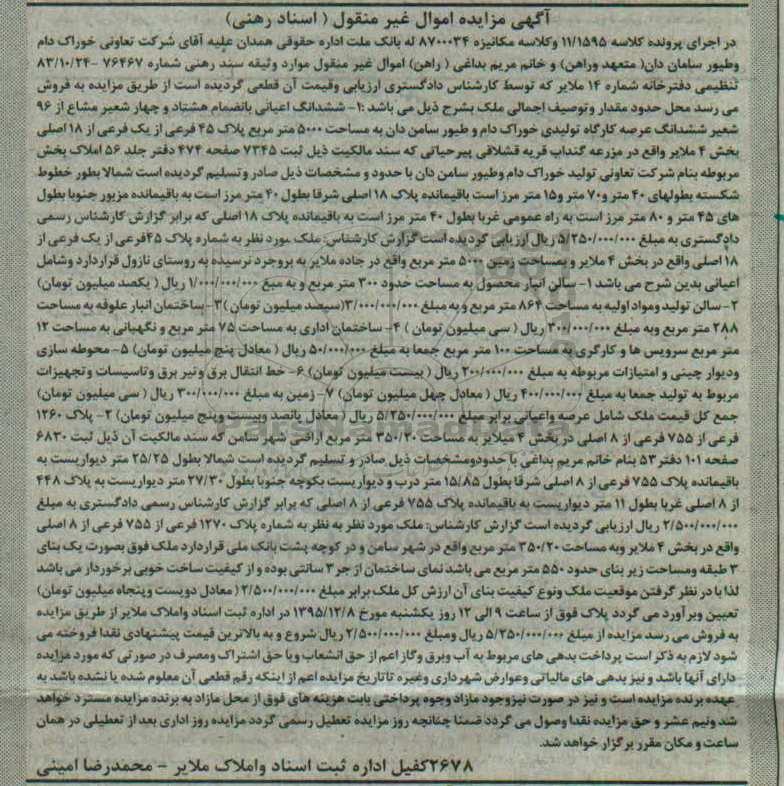 آگهی مزایده اموال غیر منقول ( اسناد رهنی)
در اجرای پرونده کلاسه ۱۱/۱۵۹۵ وکلاسه مکانیزه ۸۷۰۰۰۳۴ له بانک ملت اداره حقوقی همدان علیه آقای شرکت تعاونی خوراک دام
وطیور سامان دان( متعهد وراهن) و خانم مریم بداغی ( راهن) اموال غیر منقول موارد وثیقه سند رهنی شماره ۷۶۴۶۷ -۸۳/۱۰/۲۴
تنظیمی دفترخانه شماره ۱۴ ملایر که توسط کارشناس دادگستری ارزیابی وقیمت آن قطعی گردیده است از طریق مزایده به فروش
می رسد محل حدود مقدار وتوصیف اجمالی ملک بشرح ذیل می باشد :۱- ششدانگ اعیانی بانضمام هشتاد و چهار شعیر مشاع از ۹۶
شعیر ششدانگ عرصه کارگاه تولیدی خوراک دام و طیور سامن دان به مساحت ۵۰۰۰ متر مربع پلاک ۴۵ فرعی از یک فرعی از ۱۸ اصلی
بخش ۴ ملایر واقع در مزرعه گنداب قریه قشلاقی پیرحیاتی که سند مالکیت ذیل ثبت ۷۳۴۵ صفحه ۴۷۴ دفتر جلد ۵۶ املاک بخش
مربوطه بنام شرکت تعاونی تولید خوراک دام وطیور سامن دان با حدود و مشخصات ذیل صادر وتسلیم گردیده است شمالا بطور خطوط
شکسته بطولهای ۴۰ متر و۷۰ متر و۱۵ متر مرز است باقیمانده پلاک ۱۸ اصلی شرقا بطول ۴۰ متر مرز است به باقیمانده مزبور جنوبا بطول
های ۴۵ متر و ۸۰ متر مرز است به راه عمومی غربا بطول ۴۰ متر مرز است به باقیمانده پلاک ۱۸ اصلی که برابر گزارش کارشناس رسمی
دادگستری به مبلغ ۵/۲۵۰/۰۰۰/۰۰۰ ریال ارزیابی گردیده است گزارش کارشناس: ملک مورد نظر به شماره پلاک ۴۵فرعی از یک فرعی از
۱۸ اصلی واقع در بخش ۴ ملایر و بمساحت زمین ۵۰۰۰ متر مربع واقع در جاده ملایر به بروجرد نرسیده به روستای نازول قراردارد وشامل
اعیانی بدین شرح می باشد ۱- سالن انبار محصول به مساحت حدود ۳۰۰ متر مربع و به مبغ ۱/۰۰۰/۰۰۰/۰۰۰ ریال ( یکصد میلیون تومان)
۲-سالن تولید ومواد اولیه به مساحت ۸۶۴ متر مربع و به مبلغ ۳/۰۰۰/۰۰۰/۰۰۰(سیصد میلیون تومان )۳-ساختمان انبار علوفه به مساحت
۲۸۸ متر مربع وبه مبلغ ۳۰۰/۰۰۰/۰۰۰ ریال ( سی میلیون تومان ) ۴- ساختمان اداری به مساحت ۷۵ متر مربع و نگهبانی به مساحت ۱۲
متر مربع سرویس ها و کارگری به مساحت ۱۰۰ متر مربع جمعا به مبلغ ۵۰/۰۰۰/۰۰۰ ریال ( معادل پنج میلیون تومان) ۵- محوطه سازی
ودیوار چینی و امتیازات مربوطه به مبلغ ۲۰۰/۰۰۰/۰۰۰ ریال ( بیست میلیون تومان) ۶- خط انتقال برق وتیر برق وتاسیسات وتجهیزات
مربوط به تولید جمعا به مبلغ ۴۰۰/۰۰۰/۰۰۰ ریال ( معادل چهل میلیون تومان) ۷- زمین به مبلغ ۳۰۰/۰۰۰/۰۰۰ ریال ( سی میلیون تومان)
جمع کل قیمت ملک شامل عرصه واعیانی برابر مبلغ ۵/۲۵۰/۰۰۰/۰۰۰ ریال ( معادل پانصد وبیست وپنج میلیون تومان) ۲- پلاک ۱۲۶۰
فرعی از ۷۵۵ فرعی از ۸ اصلی در بخش ۴ میلایر به مساحت ۳۵۰/۲۰ متر مربع اراضی شهر سامن که سند مالکیت آن ذیل ثبت ۶۸۳۰
صفحه ۱۰۱ دفتر ۵۳ بنام خانم مریم بداغی با حدودومشخصات ذیل صادر و تسلیم گردیده است شمالا بطول ۲۵/۲۵ متر دیواریست به
باقیمانده پلاک ۷۵۵ فرعی از ۸ اصلی شرقا بطول ۱۵/۸۵ متر درب و دیواریست بکوچه جنوبا بطول ۲۷/۳۰ متر دیواریست به پلاک ۴۴۸
از ۸ اصلی غربا بطول ۱۱ متر دیواریست به باقیمانده پلاک ۷۵۵ فرعی از ۸ اصلی که برابر گزارش کارشناس رسمی دادگستری به مبلغ
۲/۵۰۰/۰۰۰/۰۰۰ ریال ارزیابی گردیده است گزارش کارشناس: ملک مورد نظر به نظر به شماره پلاک ۱۲۷۰ فرعی از ۷۵۵ فرعی از ۸ اصلی
واقع در بخش ۴ ملایر وبه مساحت ۳۵۰/۲۰ متر مربع واقع در شهر سامن و در کوچه پشت بانک ملی قراردارد ملک فوق بصورت یک بنای
۳ طبقه ومساحت زیر بنای حدود ۵۵۰ متر مربع می باشد نمای ساختمان از جر ۳ سانتی بوده و از کیفیت ساخت خوبی برخوردار می باشد
لذا با در نظر گرفتن موقعیت ملک ونوع کیفیت بنای آن ارزش کل ملک برابر مبلغ ۲/۵۰۰/۰۰۰/۰۰۰ ( معادل دویست وپنجاه میلیون تومان)
تعیین وبرآورد می گردد پلاک فوق از ساعت ۹ الی ۱۲ روز یکشنبه مورخ ۱۳۹۵/۱۲/۸ در اداره ثبت اسناد واملاک ملایر از طریق مزایده
به فروش می رسد مزایده از مبلغ ۵/۲۵۰/۰۰۰/۰۰۰ ریال ومبلغ ۲/۵۰۰/۰۰۰/۰۰۰ ریال شروع و به بالاترین قیمت پیشنهادی نقدا فروخته می
شود لازم به ذکر است پرداخت بدهی های مربوط به آب وبرق وگاز اعم از حق انشعاب ویا حق اشتراک ومصرف در صورتی که مورد مزایده
دارای آنها باشد و نیز بدهی های مالیاتی وعوارض شهرداری وغیره تاتاریخ مزایده اعم از اینکه رقم قطعی آن معلوم شده یا نشده باشد به
عهده برنده مزایده است و نیز در صورت نیزوجود مازاد وجوه پرداختی بابت هزینه های فوق از محل مازاد به برنده مزایده مسترد خواهد
شد ونیم عشر و حق مزایده نقدا وصول می گردد ضمنا چنانچه روز مزایده تعطیل رسمی گردد مزایده روز اداری بعد از تعطیلی در همان
ساعت و مکان مقرر برگزار خواهد شد.
۲۶۷۸کفیل اداره ثبت اسناد واملاک ملایر - محمدرضا امینی